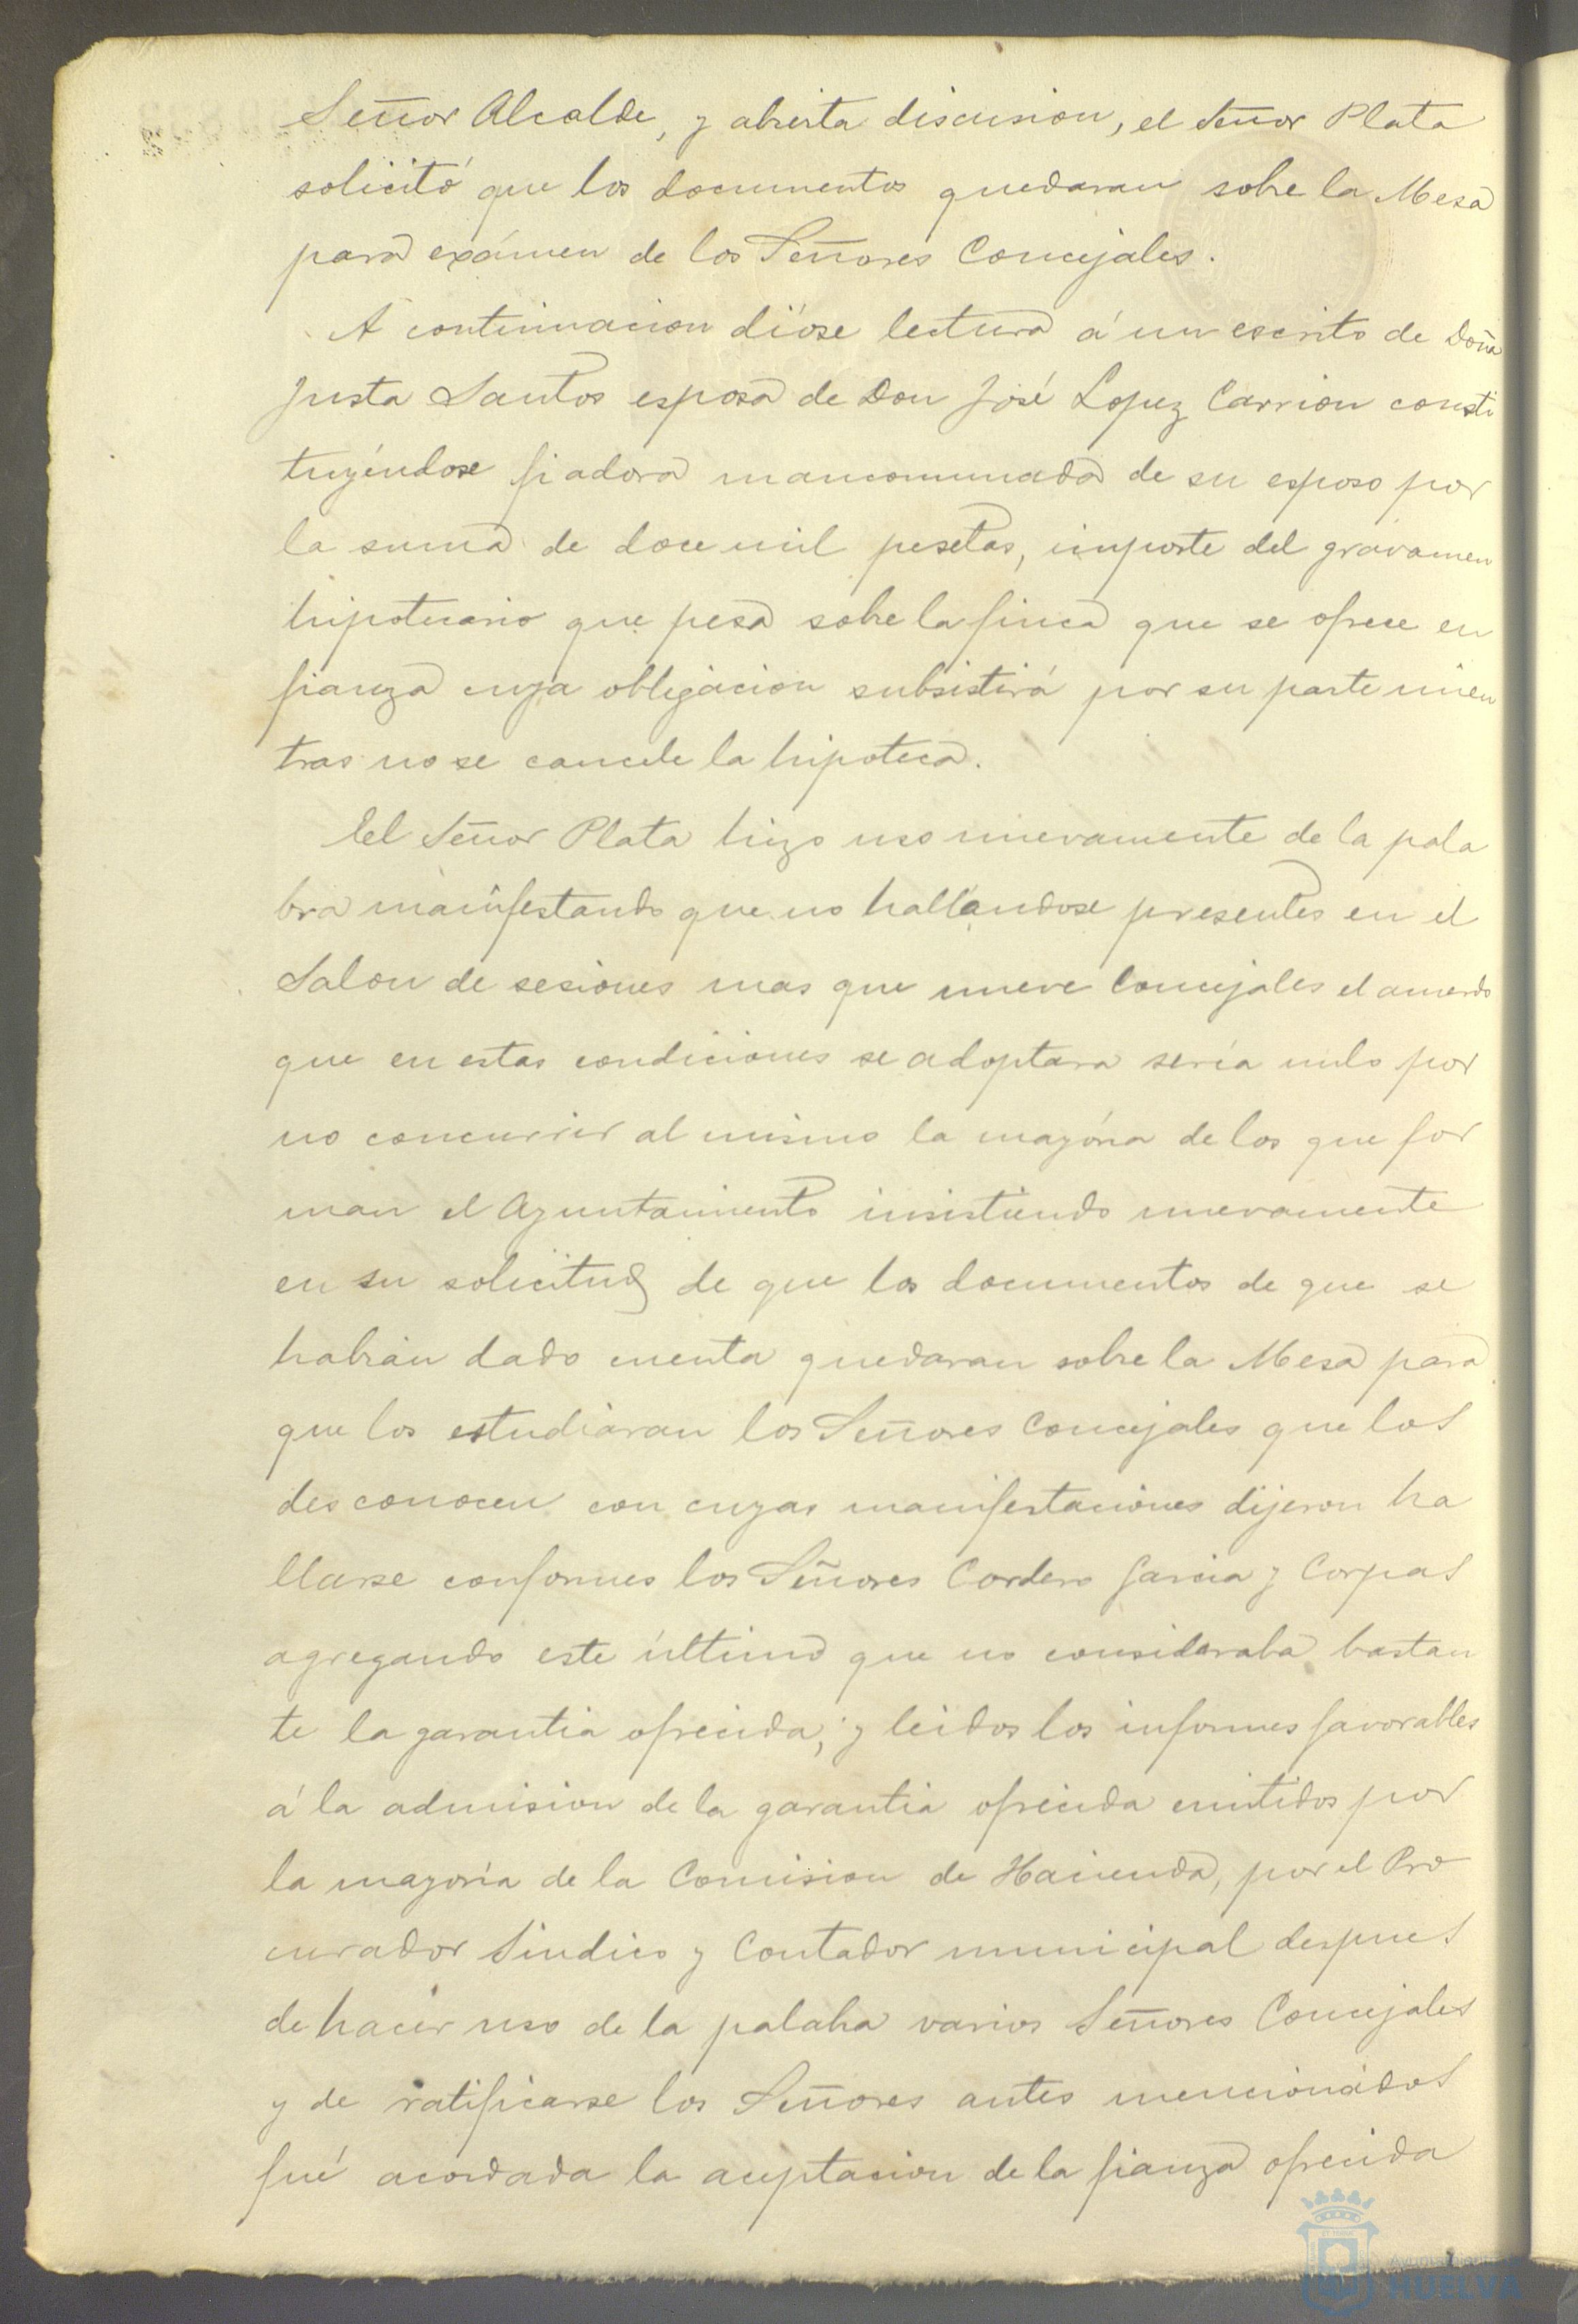 Señor Alcalde, y abierta discusion, el Señor Plata
solicitó que los documentos quedaran sobre la Mesa
para exámen de los Señores Concejales.
A continuacion dióse lectura á un escrito de Doña
Justa Santos esposa de Don José Lopez Carrion consti
tuyéndose fiadora mancomunada de su esposo por
la suma de doce mil pesetas, importe del gravamen
hipotecario que pesa sobre la finca que se ofrece en
fianza cuya obligacion subsistirá por su parte mien
tras no se cancele la hipoteca.
El Señor Plata hizo uso nuevamente de la pala
bra manifestando que no hallandose presentes en el
Salon de sesiones mas que nueve Concejales el acuerdo
que en estas condiciones se adoptara sería nulo por
no concurrir al mismo la mayória de los que for
man el Ayuntamiento insistiendo nuevamente
en su solicitud de que los documentos de que se
habian dado cuenta quedaran sobre la Mesa para
que los estudiaran los Señores Concejales que los
desconocen con cuyas manifestaciones dijeron ha
llarse conformes los Señores Cordero Garcia y Corpas
agregando este último que no consideraba bastan
te la garantia ofrecida; y leidos los informes favorables
á la admision de la garantia ofrecida emitidos por
la mayoría de la Comision de Hacienda, por el Pro
curador Sindico y Contador municipal despues
de hacer uso de la palaba varios Señores Concejales
y de ratificarse los Señores antes mencionados
fué acordada la aceptacion de la fianza ofrecida
Ayuntamiento
HUELVA